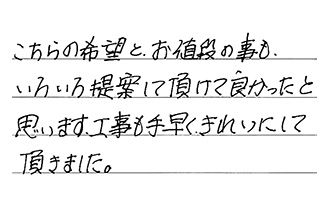 こちらの希望と、お値段の事も、
いろいろ提案して頂けて良かったと
思います。工事も手早く、きれいにして
頂きました。